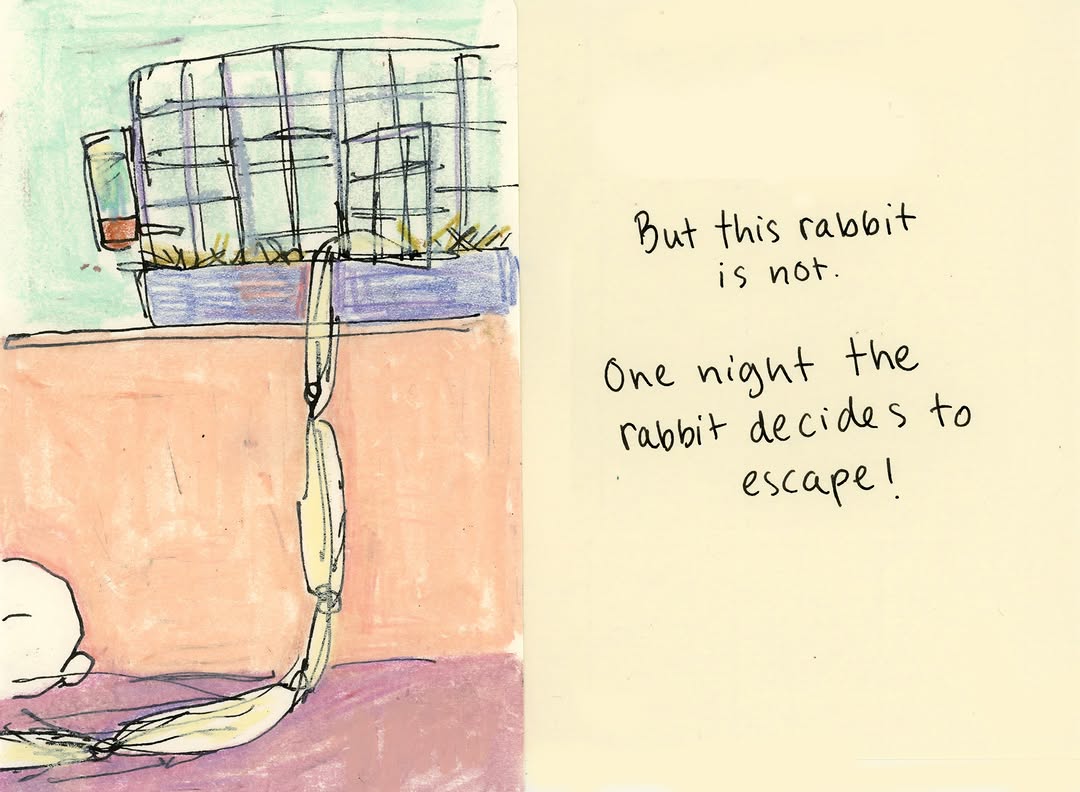 But this rabbit
is not.
One night the
rabbit decides to
escape!